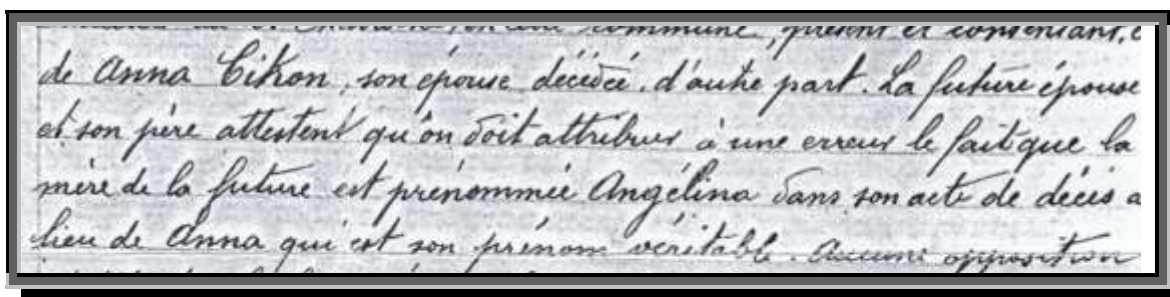 commune, présent et consentant, e
de Anna Cikon, son épouse décédée, d'autre part. La future épouse
et son père attestent qu'on doit attribuer à une erreur le fait que la
mère de la future est prénommée Angélina dans son acte de décès a
lieu de Anna qui est son prénom véritable. Aucune opposition